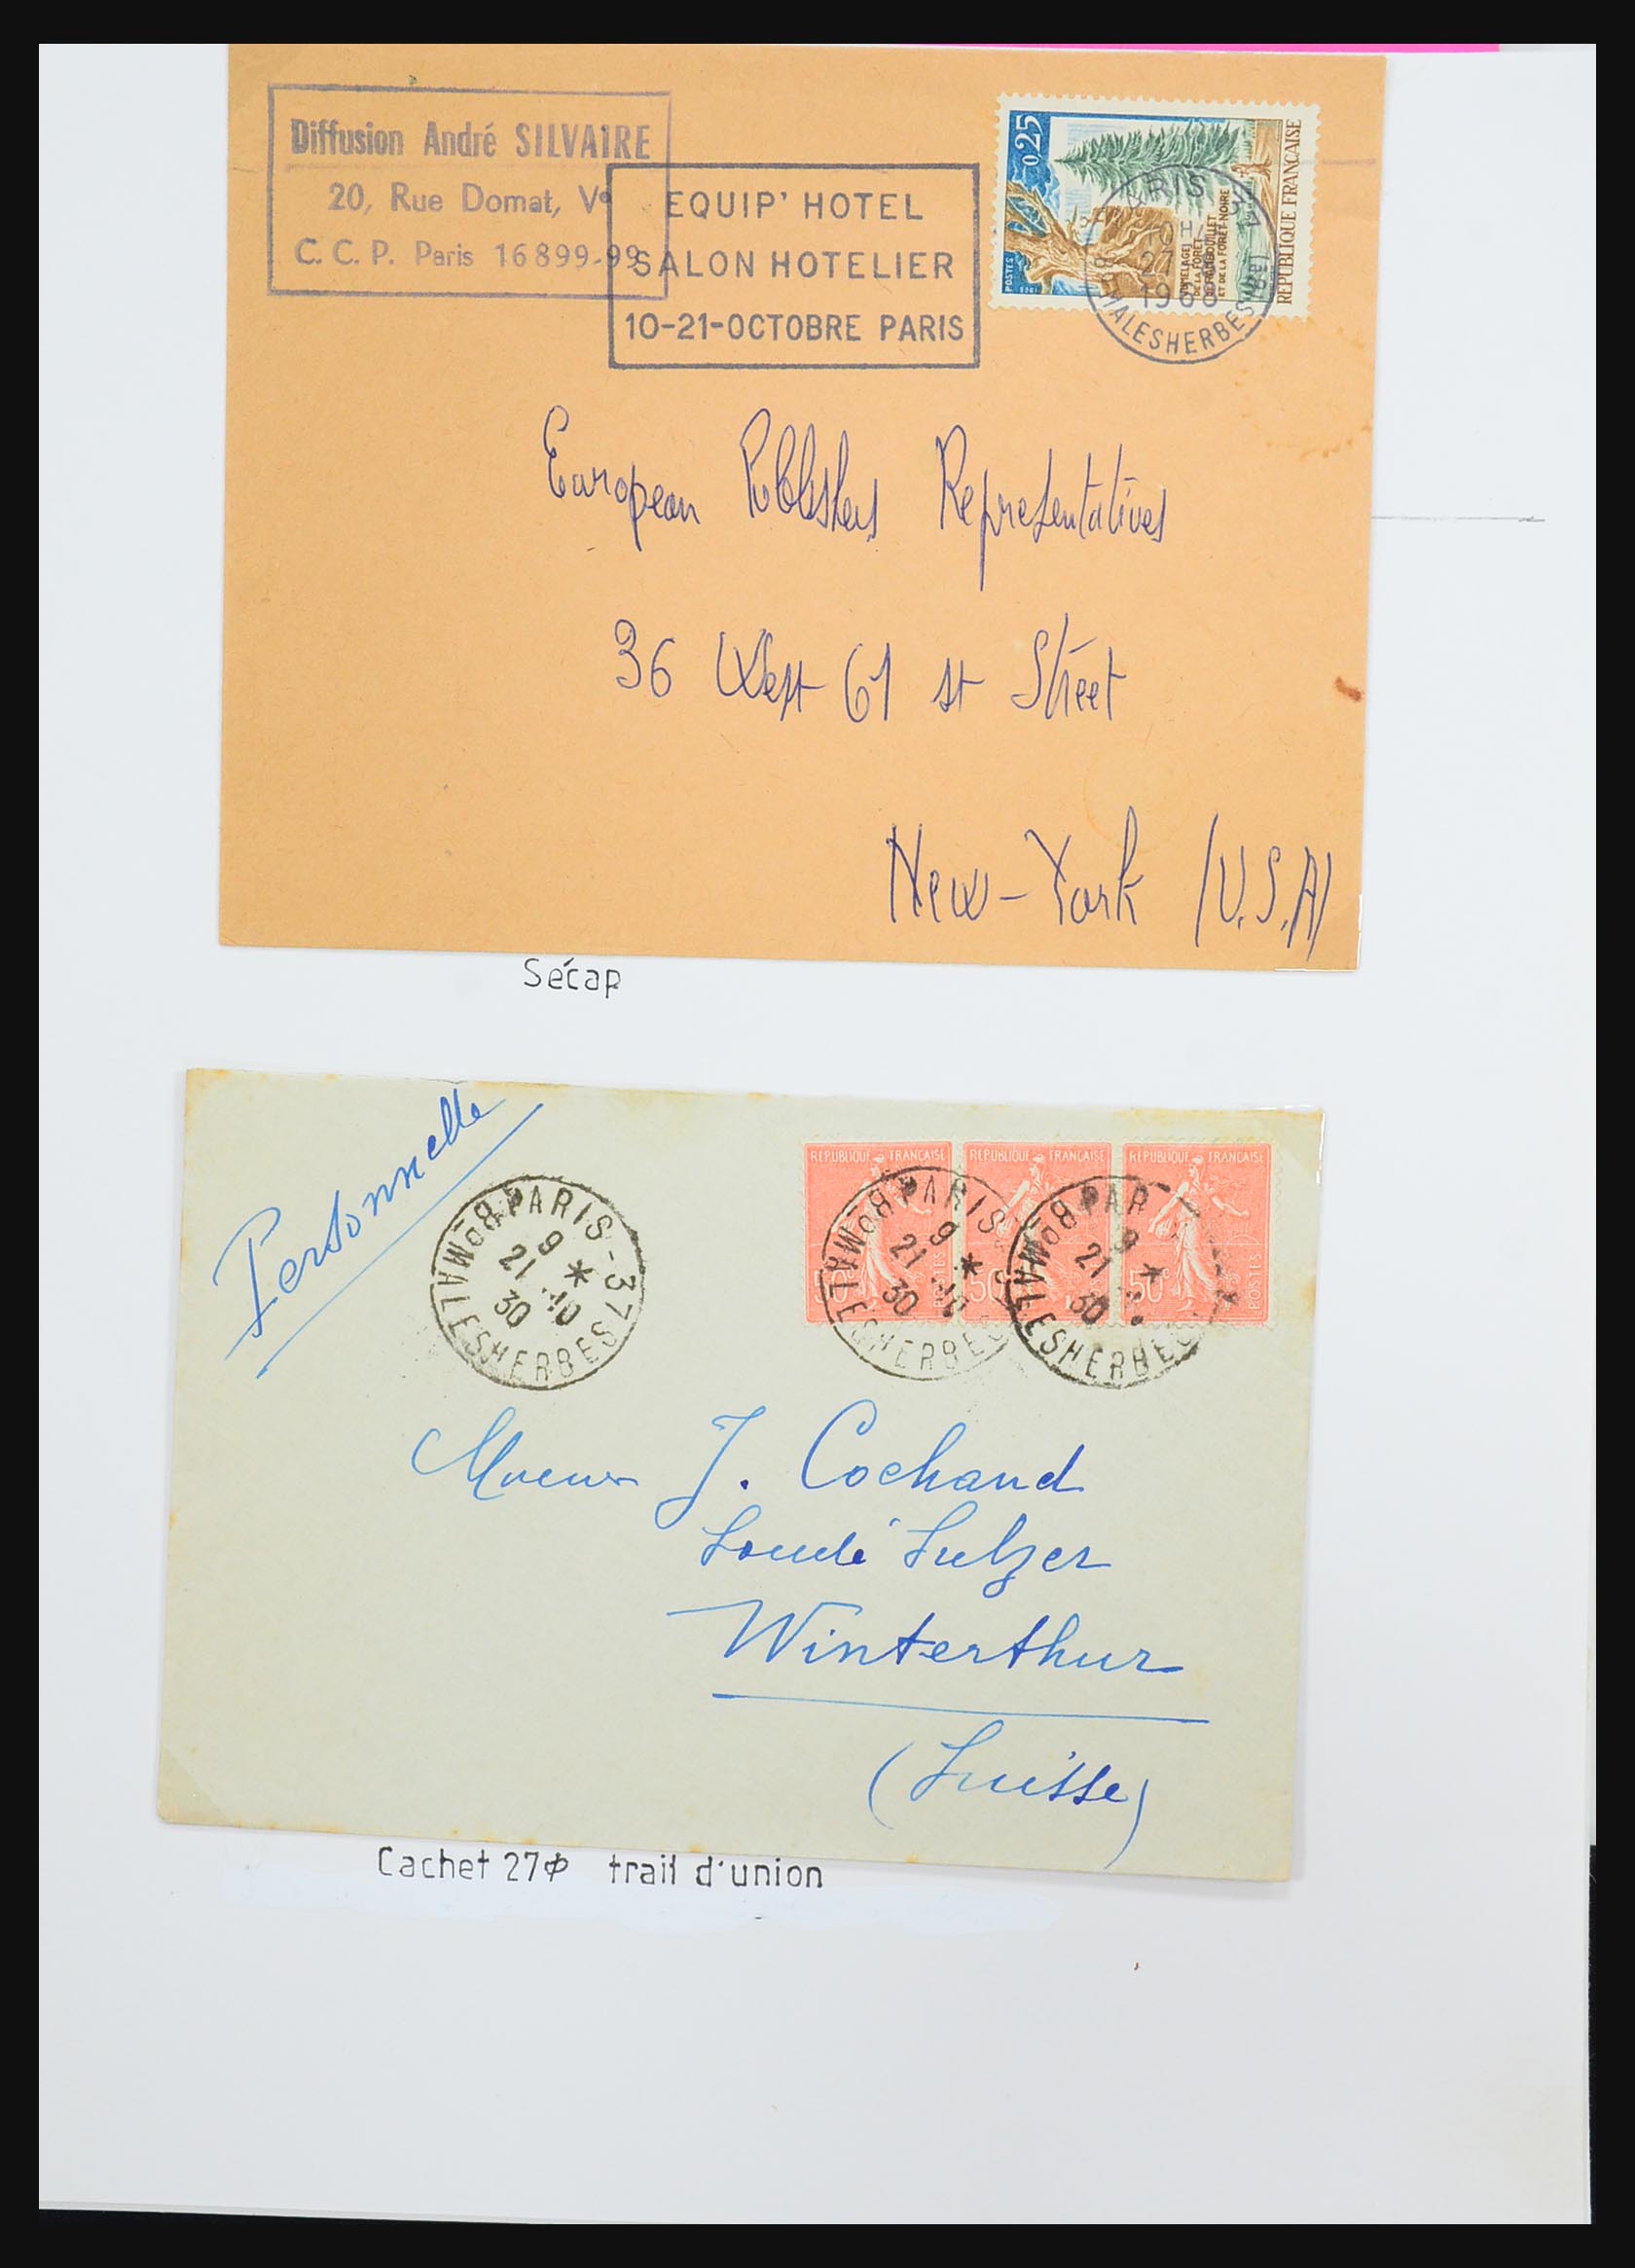 Diffusion André SILVAIRE
20, Rue Domat, Ve
C. C. P. Paris 16899-99
EQUIP' HOTEL
SALON HOTELIER
10-21-OCTOBRE PARIS
0,25
POSTES
REPUBLIQUE FRANCAISE
JUMELAGE
DE LA FORET
DE RAMBOUILLET
ET DE LA FORET-NOIRE
PARIS
10H
27
1968
MALESHERBES
European Publishers Representatives
36 West 61 st Street
New-York (U.S.A)
Sécap
Personnelle
PARIS-37
9 *
21-10
30
Bd MALESHERBES
REPUBLIQUE FRANÇAISE
REPUBLIQUE FRANÇAISE
REPUBLIQUE FRANÇAISE
50c
50c
50c
POSTES
PARIS
9 *
21
30
Bd MALESHERBES
PAR
9 *
21
30
Bd MALESHERBES
J. Cochand
Sulzer
Winterthur
(Suisse)
Cachet 27φ trait d'union